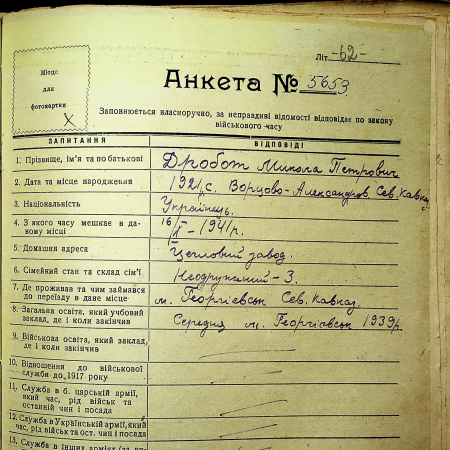 Літ. -62-
Місце
для
фотокартки
Х
Анкета № 5653
Заповнюється власноручно, за неправдиві відомості відповідає по закону
військового часу
ЗАПИТАННЯ ВІДПОВІДІ
1. Прізвище, ім'я та по батькові Дробот Микола Петрович
2. Дата та місце народження 1921, с. Ворцово-Александров. Сев. Кавказ
3. Національність Українець.
4. З якого часу мешкає в даному місці 16/II – 1941 р.
5. Домашня адреса Цегловий завод.
6. Сімейний стан та склад сім'ї Неодружений - 3.
7. Де проживав та чим займався
до переїзду в дане місце м. Георгієвськ Сев. Кавказ.
8. Загальна освіта, який учбовий
заклад, де і коли закінчив Середня м. Георгієвськ 1939 р.
9. Військова освіта, який заклад,
де і коли закінчив
10. Відношення до військової
служби до 1917 року
11. Служба в б. царській армії,
який час, рід військ та
останній чин і посада
12. Служба в Українській армії, який
час, рід військ та ост. чин і посада
13. Служба в інших арміях